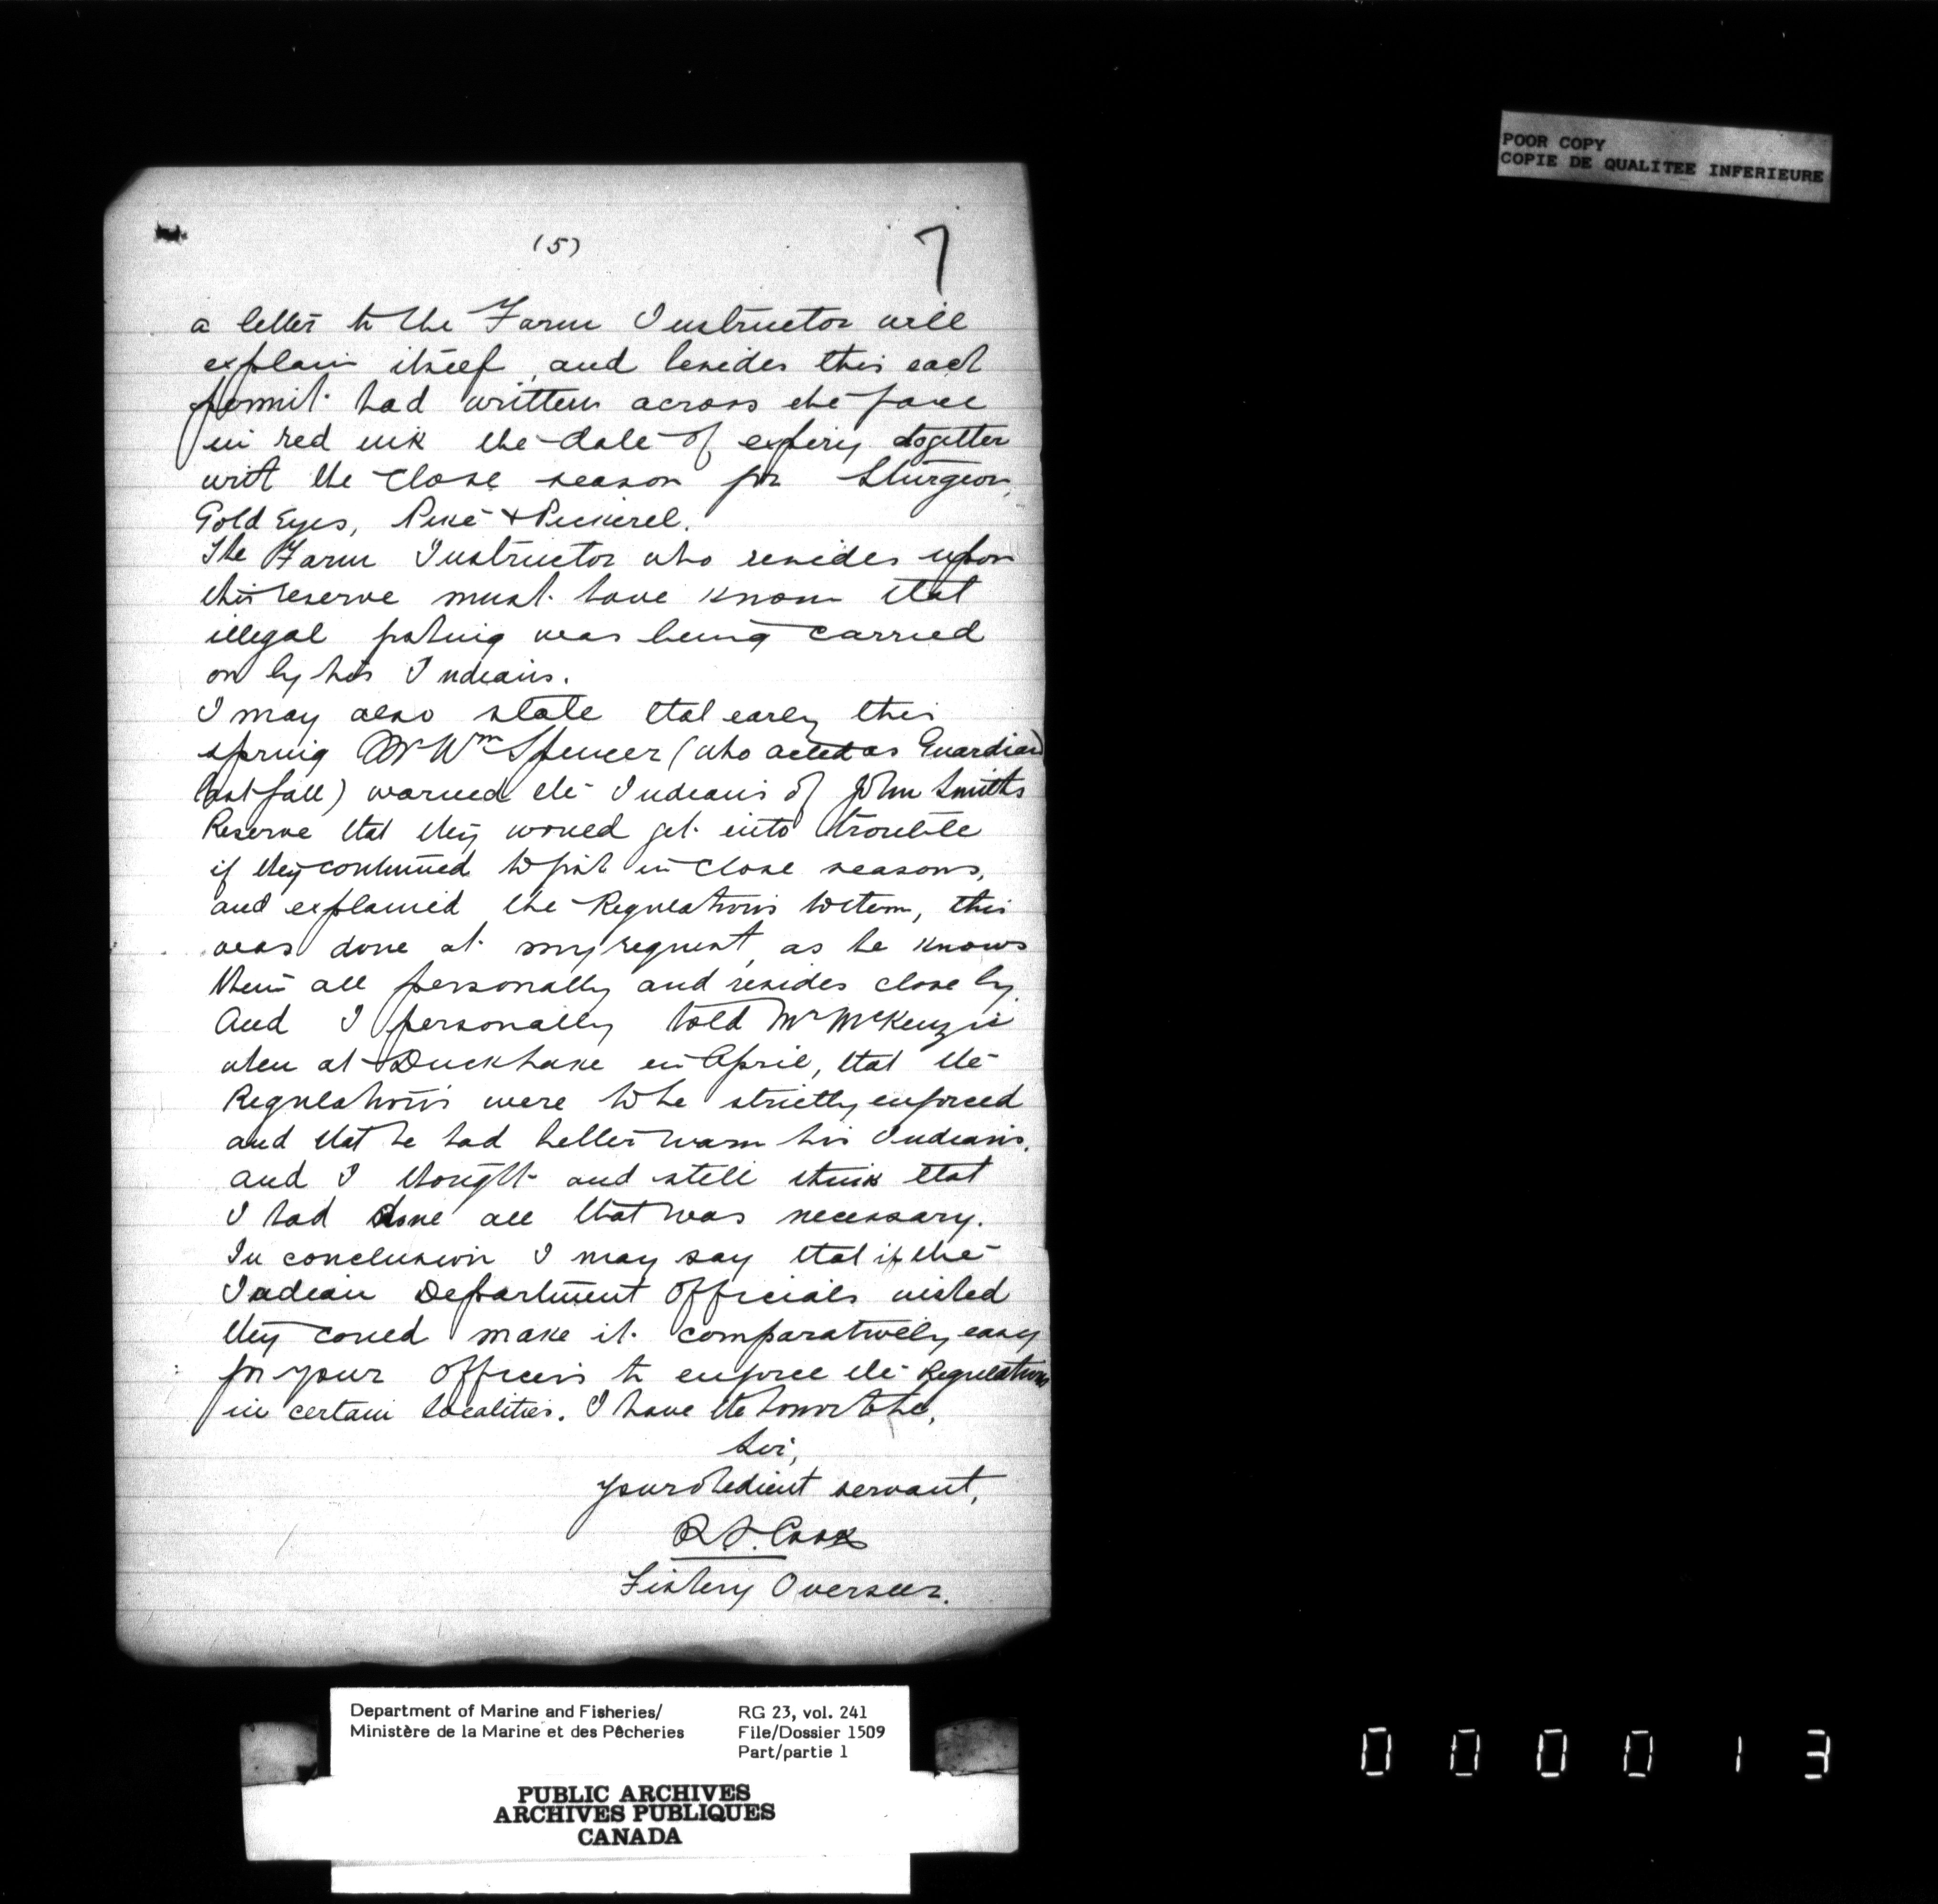 POOR COPY
COPIE DE QUALITEE INFERIEURE
(5)
7
a letter to the Farm Instructor will
explain itself, and besides this each
permit had written across the face
in red ink the date of expiry together
with the close season for Sturgeon,
Gold Eyes, Pike & Pickerel.
The Farm Instructor who resides upon
this reserve must have known that
illegal fishing was being carried
on by his Indians.
I may also state that early this
spring Mr Wm Spencer (who acted as Guardian
last fall) warned the Indians of John Smiths
Reserve that they would get into trouble
if they continued to fish in close seasons,
and explained the Regulations to them, this
was done at my request, as he knows
them all personally and resides close by.
And I personally told Mr McKenzie
when at Duck Lake in April, that the
Regulations were to be strictly enforced
and that he had better warn his Indians,
and I thought and still think that
I had done all that was necessary.
In conclusion I may say that if the
Indian Department Officials wished
they could make it comparatively easy
for your officers to enforce the Regulations
in certain localities. I have the honor to be,
Sir,
your obedient servant,
R S. Cook
Fishery Overseer.
Department of Marine and Fisheries/ RG 23, vol. 241
Ministère de la Marine et des Pêcheries File/Dossier 1509
Part/partie 1
PUBLIC ARCHIVES
ARCHIVES PUBLIQUES
CANADA
000013